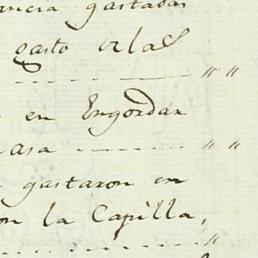 gastadas
gasto en la
" "
en Engordar
casa " "
gastaron en
la Capilla,
"